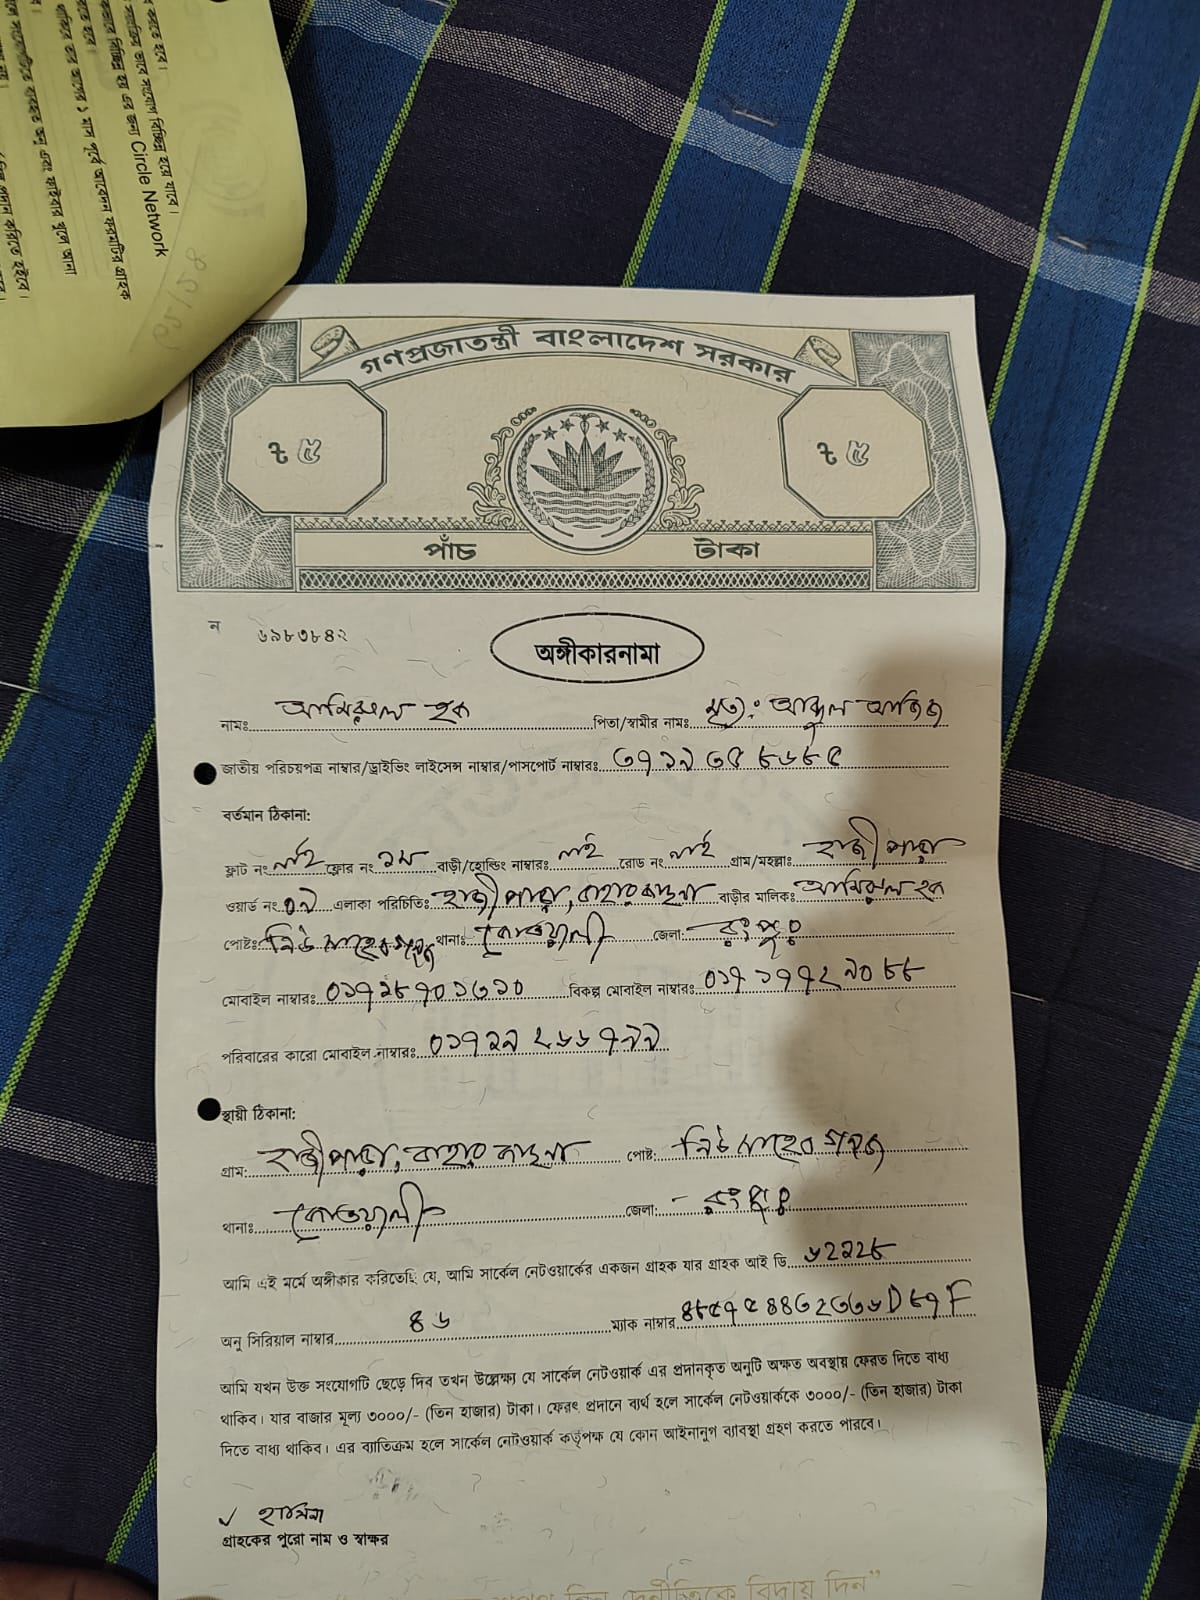 করতে হবে।
সংযোগ বিচ্ছিন্ন হয়ে যাবে।
Circle Network
গণপ্রজাতন্ত্রী বাংলাদেশ সরকার
৳ ৫ ৳ ৫
পাঁচ টাকা
ন ৬৯৮৩৮৪২
অঙ্গীকারনামা
নামঃ আমিরুল হক পিতা/স্বামীর নামঃ মৃতঃ আব্দুল আজিজ
জাতীয় পরিচয়পত্র নাম্বার/ড্রাইভিং লাইসেন্স নাম্বার/পাসপোর্ট নাম্বারঃ ৩৭১৯৩৫৮৬৮৫
বর্তমান ঠিকানা:
ফ্লাট নং নাই ফ্লোর নং ১ম বাড়ী/হোল্ডিং নাম্বারঃ নাই রোড নং নাই গ্রাম/মহল্লাঃ হাজী পাড়া
ওয়ার্ড নং ০৯ এলাকা পরিচিতিঃ হাজী পাড়া, বাহার কাছনা বাড়ীর মালিকঃ আমিরুল হক
পোষ্টঃ নিউ সাহেবগঞ্জ থানাঃ কোতয়ালী জেলা: রংপুর
মোবাইল নাম্বারঃ ০১৭২৮৭০১৩১০ বিকল্প মোবাইল নাম্বারঃ ০১৭১৭৭২৯০৮৮
পরিবারের কারো মোবাইল নাম্বারঃ ০১৭২৯২৬৬৭৯৯
স্থায়ী ঠিকানা:
গ্রাম: হাজীপাড়া, বাহার কাছনা পোষ্ট: নিউ সাহেব গঞ্জ
থানাঃ কোতয়ালী জেলা: রংপুর
আমি এই মর্মে অঙ্গীকার করিতেছি যে, আমি সার্কেল নেটওয়ার্কের একজন গ্রাহক যার গ্রাহক আই ডি
অনু সিরিয়াল নাম্বার ৪৬ ম্যাক নাম্বার
আমি যখন উক্ত সংযোগটি ছেড়ে দিব তখন উল্লেক্ষ্য যে সার্কেল নেটওয়ার্ক এর প্রদানকৃত অনুটি অক্ষত অবস্থায় ফেরত দিতে বাধ্য
থাকিব। যার বাজার মূল্য ৩০০০/- (তিন হাজার) টাকা। ফেরৎ প্রদানে ব্যর্থ হলে সার্কেল নেটওয়ার্ককে ৩০০০/- (তিন হাজার) টাকা
দিতে বাধ্য থাকিব। এর ব্যাতিক্রম হলে সার্কেল নেটওয়ার্ক কর্তৃপক্ষ যে কোন আইনানুগ ব্যাবস্থা গ্রহণ করতে পারবে।
হাসিনা
গ্রাহকের পুরো নাম ও স্বাক্ষর
দিন দুর্নীতিকে বিদায় দিন”